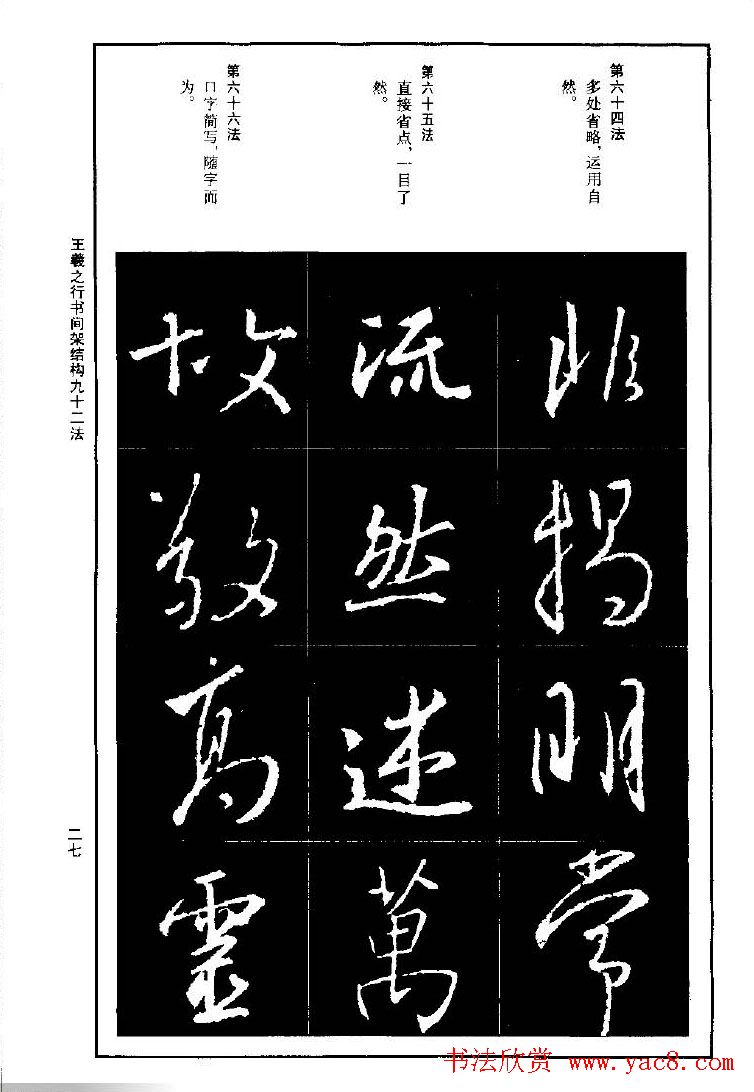 第六十四法
多处省略，运用自
然。
第六十五法
直接省点，一目了
然。
第六十六法
口字简写，随字而
为。
非揭明常
流然述萬
故敬高靈
王羲之行书间架结构九十二法
二七
书法欣赏 www.yac8.com